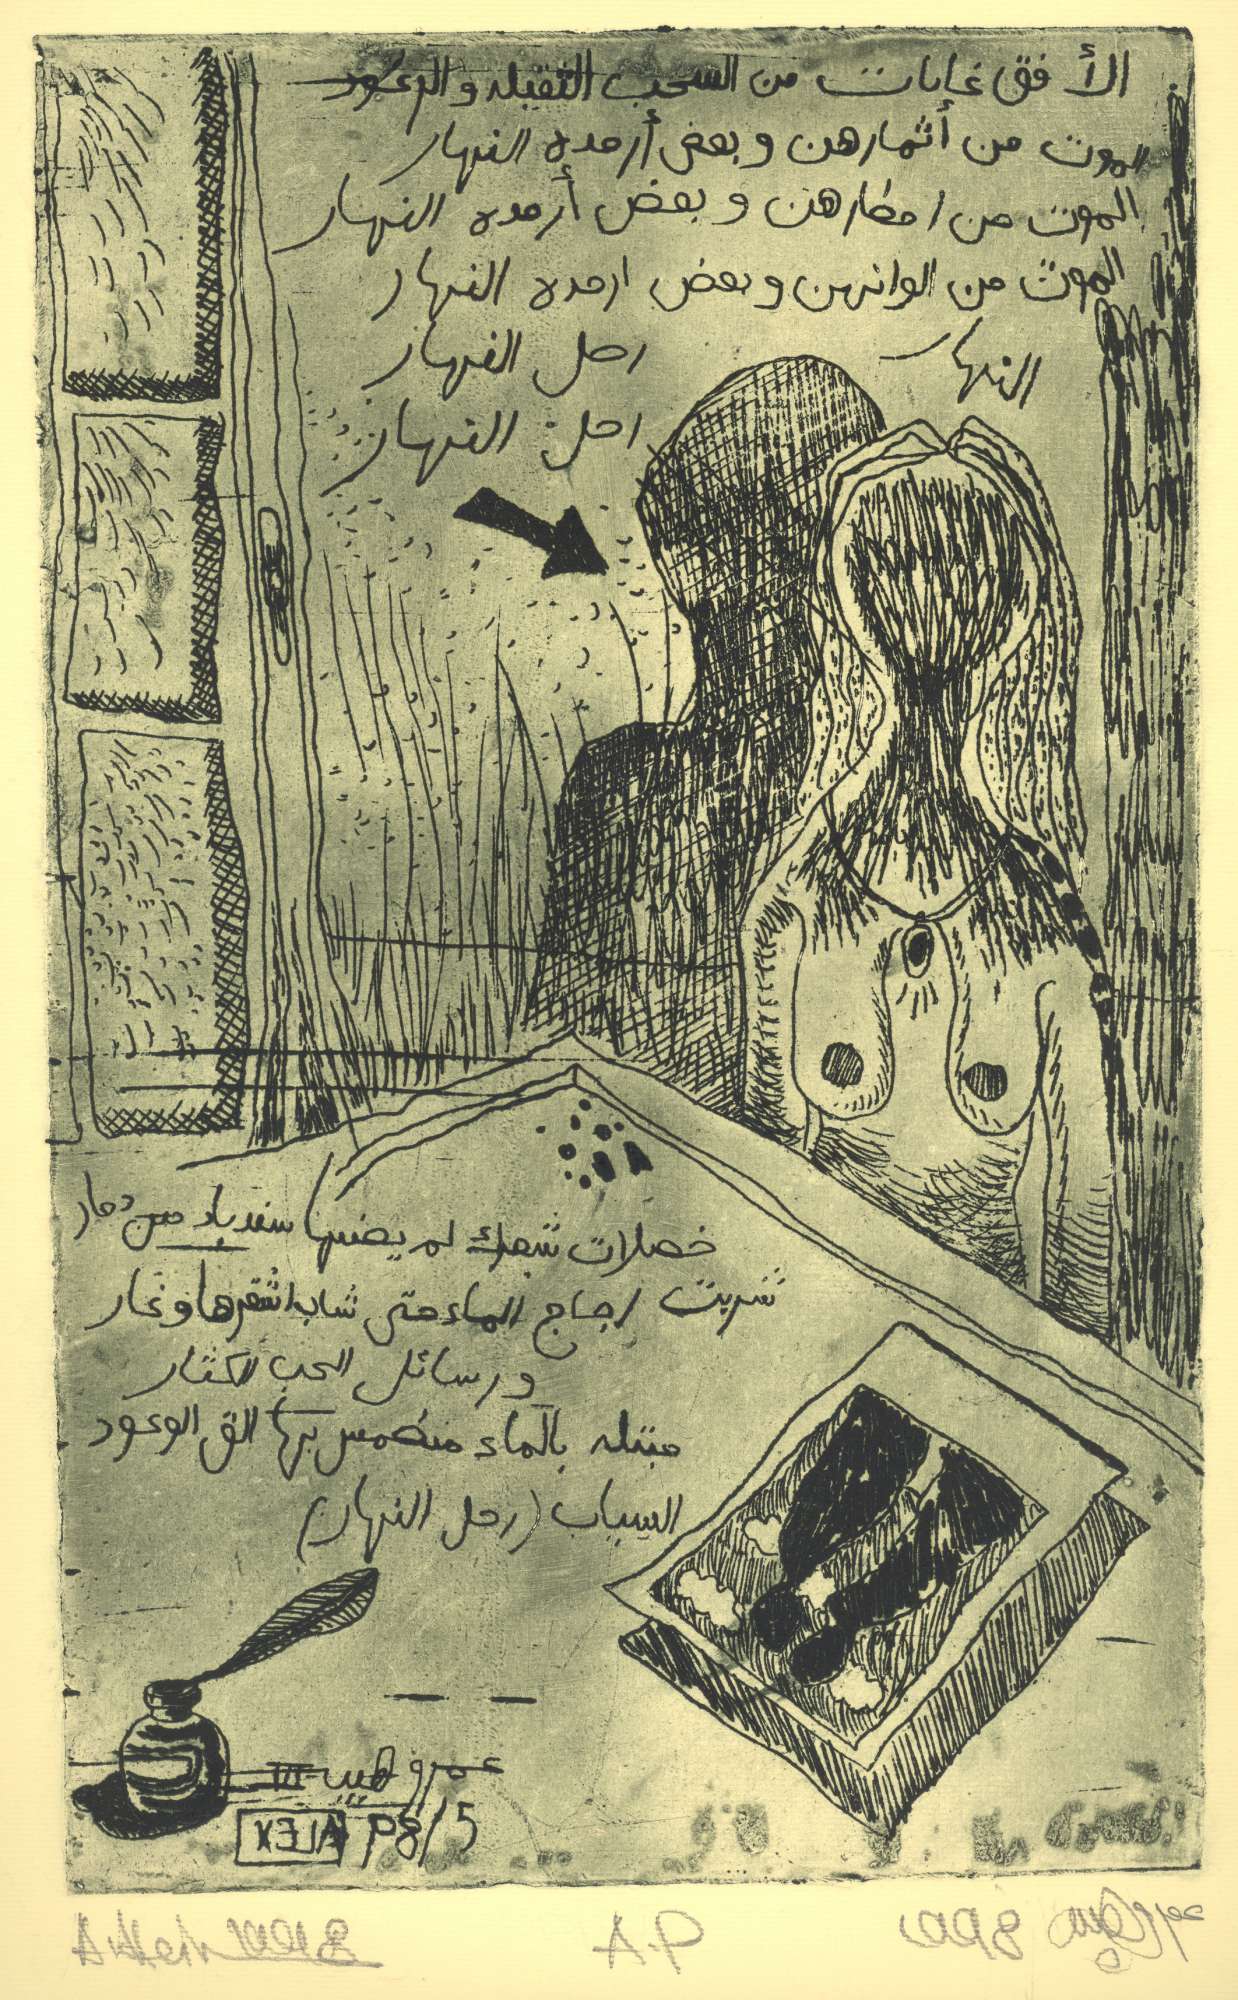 الأفق غابات من السحب الثقيله والرعود
الموت من أثمارهن وبعض أرمده النهار
الموت من امطارهن وبعض أرمده النهار
الموت من الوانهن وبعض ارمده النهار
النهار
رحل النهار
رحل النهار
خصلات شعرك لم يصنها سندباد من دمار
شربت اجاج الماء حتى شاب اشقرها وغار
ورسائل الحب الكثار
مبتله بالماء منطمس بها الق الوعود
السياب (رحل النهار)
عمرو
ALEX 89/5
A.P